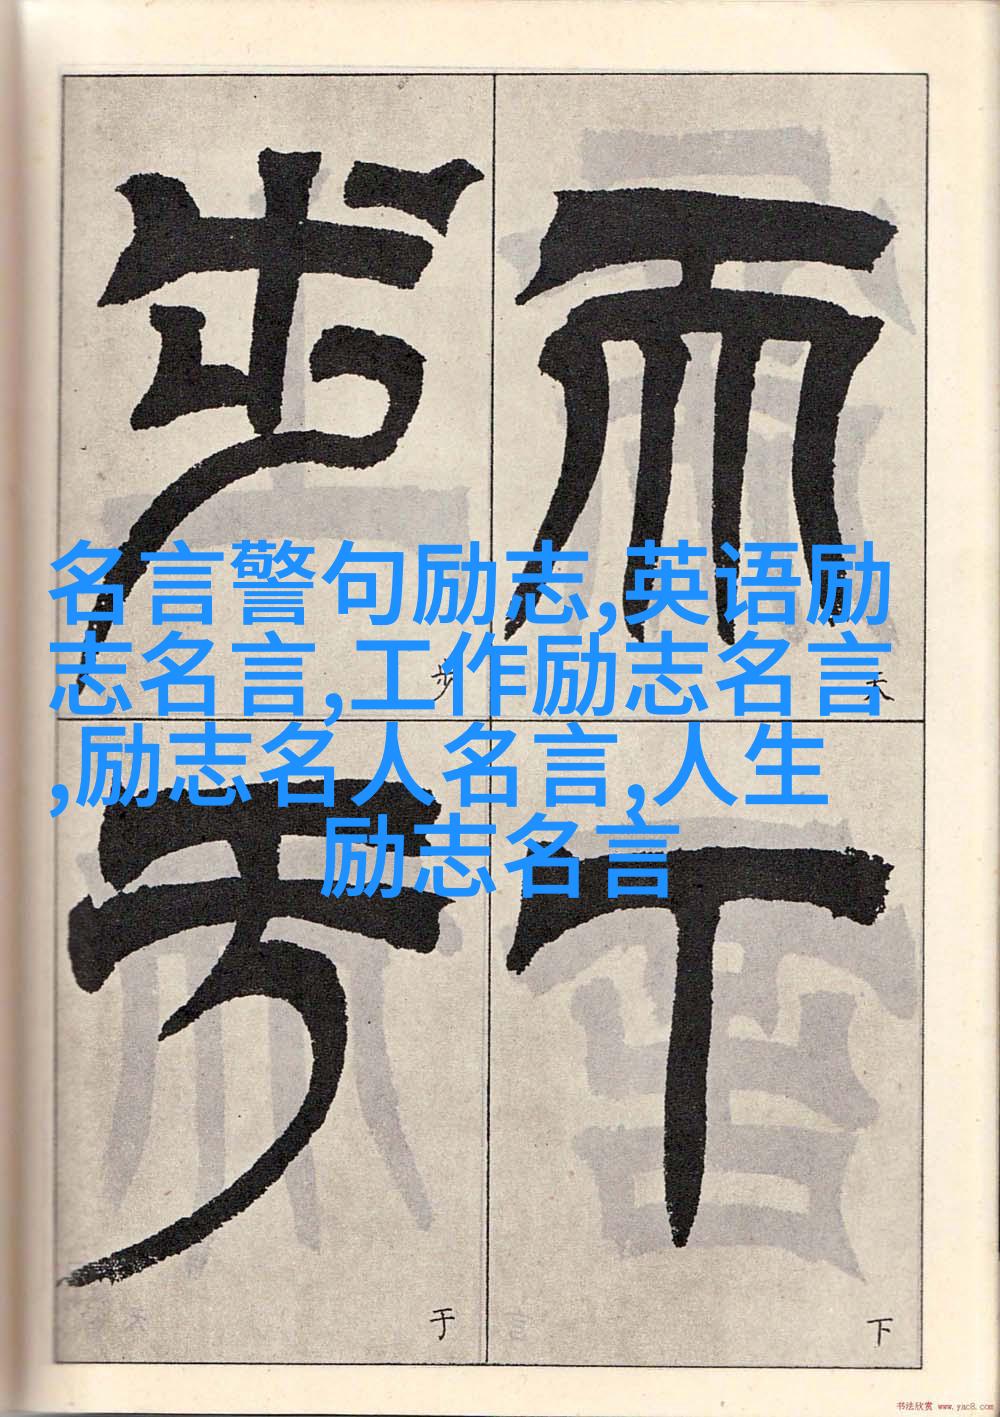 名言警句励志,英语励
志名言,工作励志名言
,励志名人名言,人生
励志名言
天
天
下
下
步
步
于
于
书法欣赏 www.yac8.com